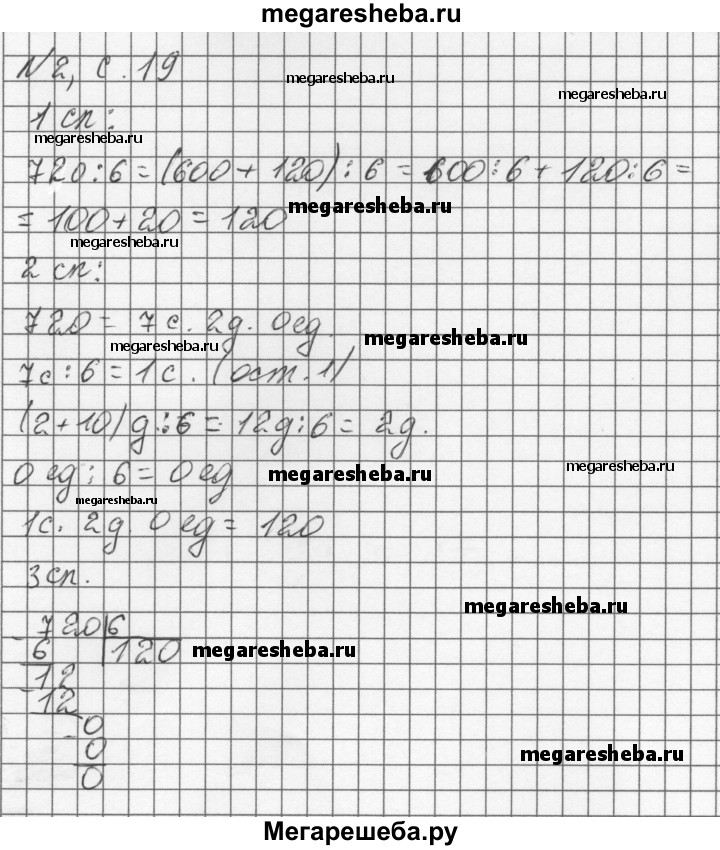 megaresheba.ru
N2, с. 19
megaresheba.ru
megaresheba.ru
1 сп:
megaresheba.ru
720:6=(600+120):6=600:6+120:6=
megaresheba.ru
=100+20=120
megaresheba.ru
2 сп:
720= 7с. 2д. 0ед.
megaresheba.ru
megaresheba.ru
7с:6=1с. (ост.1)
(2+10)д:6=12д:6= 2д.
0ед:6=0ед
megaresheba.ru
megaresheba.ru
megaresheba.ru
1с. 2д. 0ед= 120
3сп.
megaresheba.ru
- 720|6
6 |120
megaresheba.ru
- 12
12
- 0
0
megaresheba.ru
0
Мегарешеба.ру